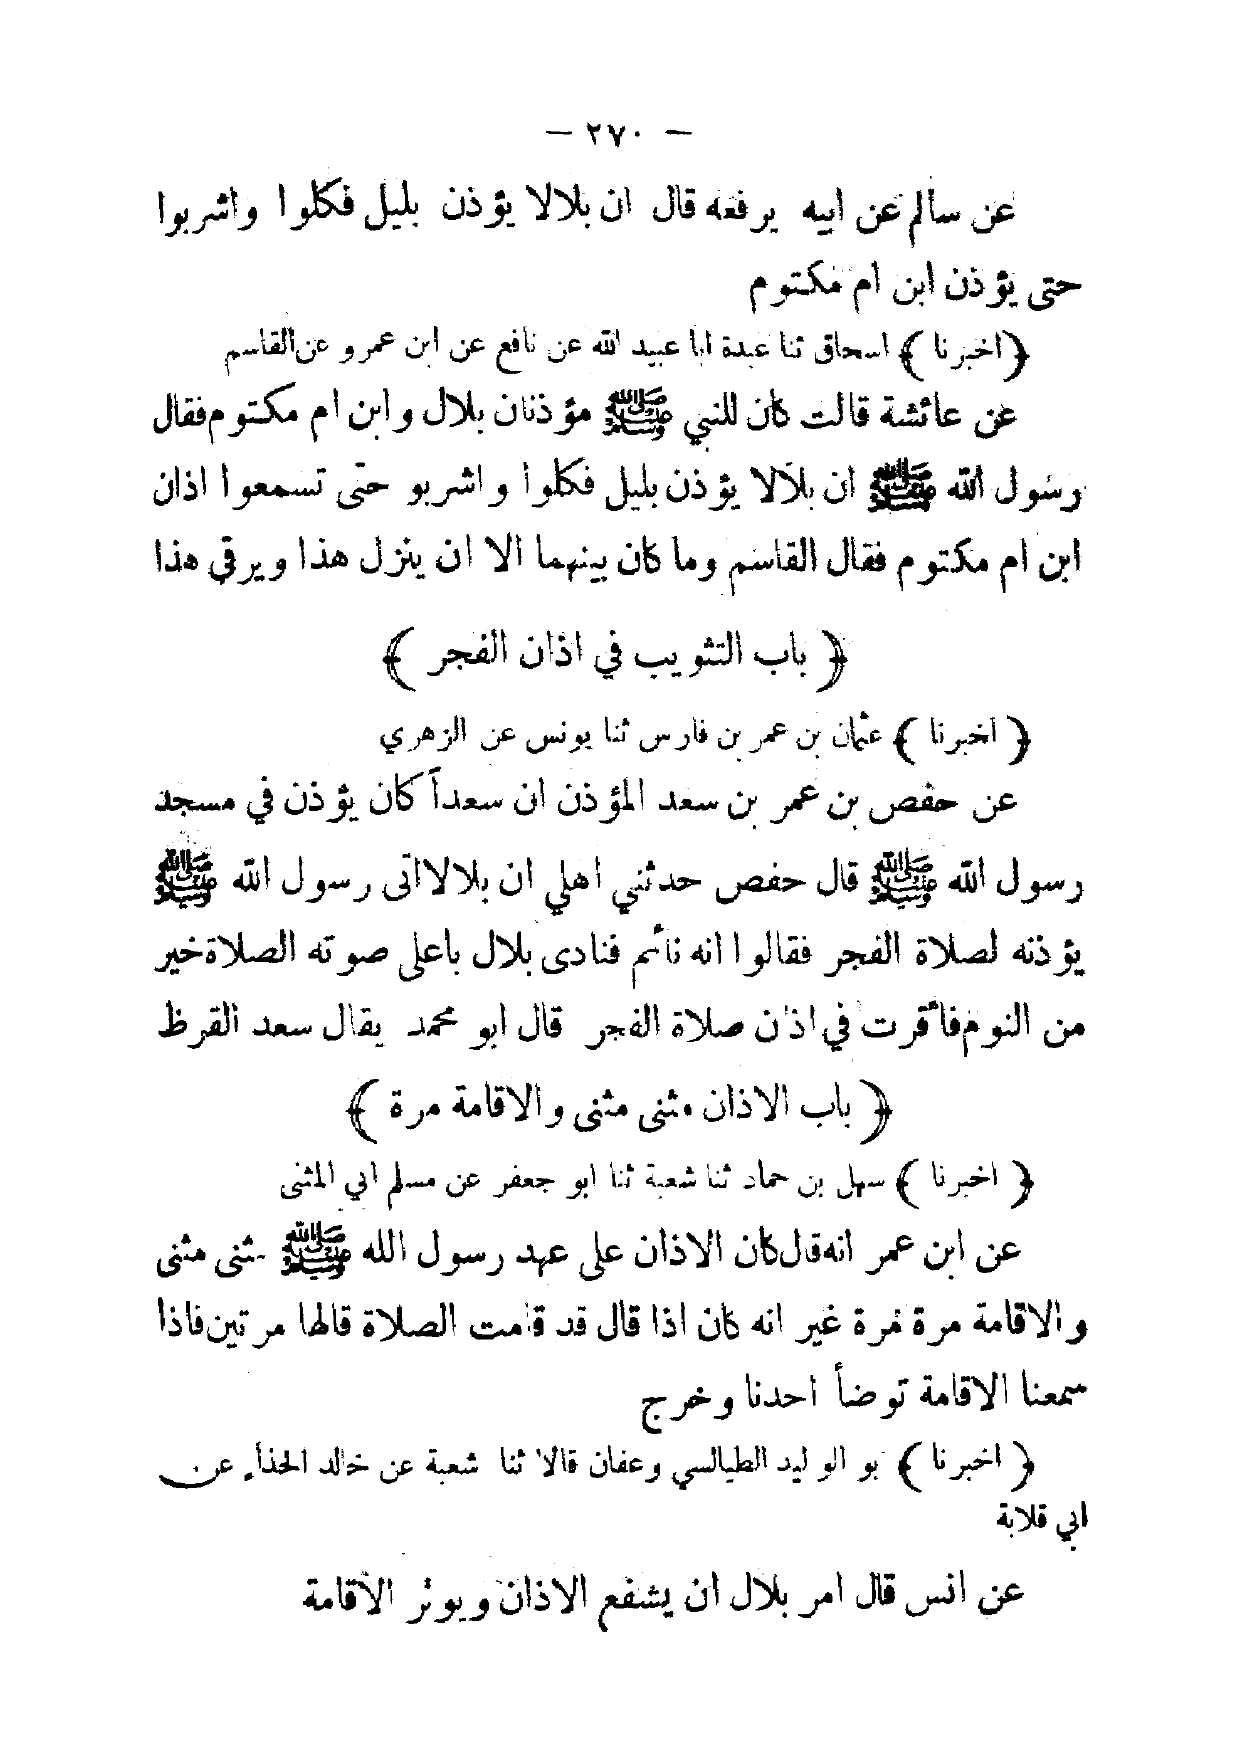 — ٢٧٠ —
عن سالم عن ابيه يرفعه قال ان بلالا يؤذن بليل فكلوا واشربوا
حتى يؤذن ابن ام مكتوم
﴿اخبرنا﴾ اسحاق ثنا عبدة انا عبيد الله عن نافع عن ابن عمرو عن القاسم
عن عائشة قالت كان للنبي ﷺ مؤذنان بلال وابن ام مكتوم فقال
رسول الله ﷺ ان بلالا يؤذن بليل فكلوا واشربو حتى تسمعوا اذان
ابن ام مكتوم فقال القاسم وما كان بينهما الا ان ينزل هذا ويرقى هذا
﴿ باب التثويب في اذان الفجر ﴾
﴿ اخبرنا ﴾ عثمان بن عمر بن فارس ثنا يونس عن الزهري
عن حفص بن عمر بن سعد المؤذن ان سعداً كان يؤذن في مسجد
رسول الله ﷺ قال حفص حدثني اهلي ان بلالا اتى رسول الله ﷺ
يؤذنه لصلاة الفجر فقالوا انه نائم فنادى بلال باعلى صوته الصلاة خير
من النوم فأقرت في اذان صلاة الفجر قال ابو محمد يقال سعد القرظ
﴿ باب الاذان مثنى مثنى والاقامة مرة ﴾
﴿ اخبرنا ﴾ سهل بن حماد ثنا شعبة ثنا ابو جعفر عن مسلم ابي المثنى
عن ابن عمر انه قال كان الاذان على عهد رسول الله ﷺ مثنى مثنى
والاقامة مرة مرة غير انه كان اذا قال قد قامت الصلاة قالها مرتين فاذا
سمعنا الاقامة توضأ احدنا وخرج
﴿ اخبرنا ﴾ بو الوليد الطيالسي وعفان قالا ثنا شعبة عن خالد الحذاء عن
ابي قلابة
عن انس قال امر بلال ان يشفع الاذان ويوتر الاقامة